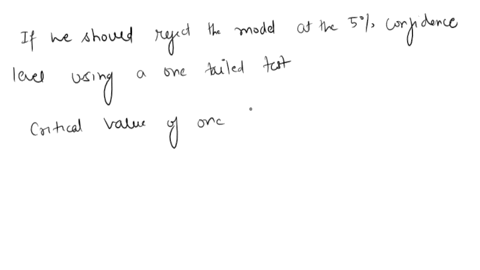 If we should reject the model at the 5% confidence
level using a one tailed test
Critical value of one